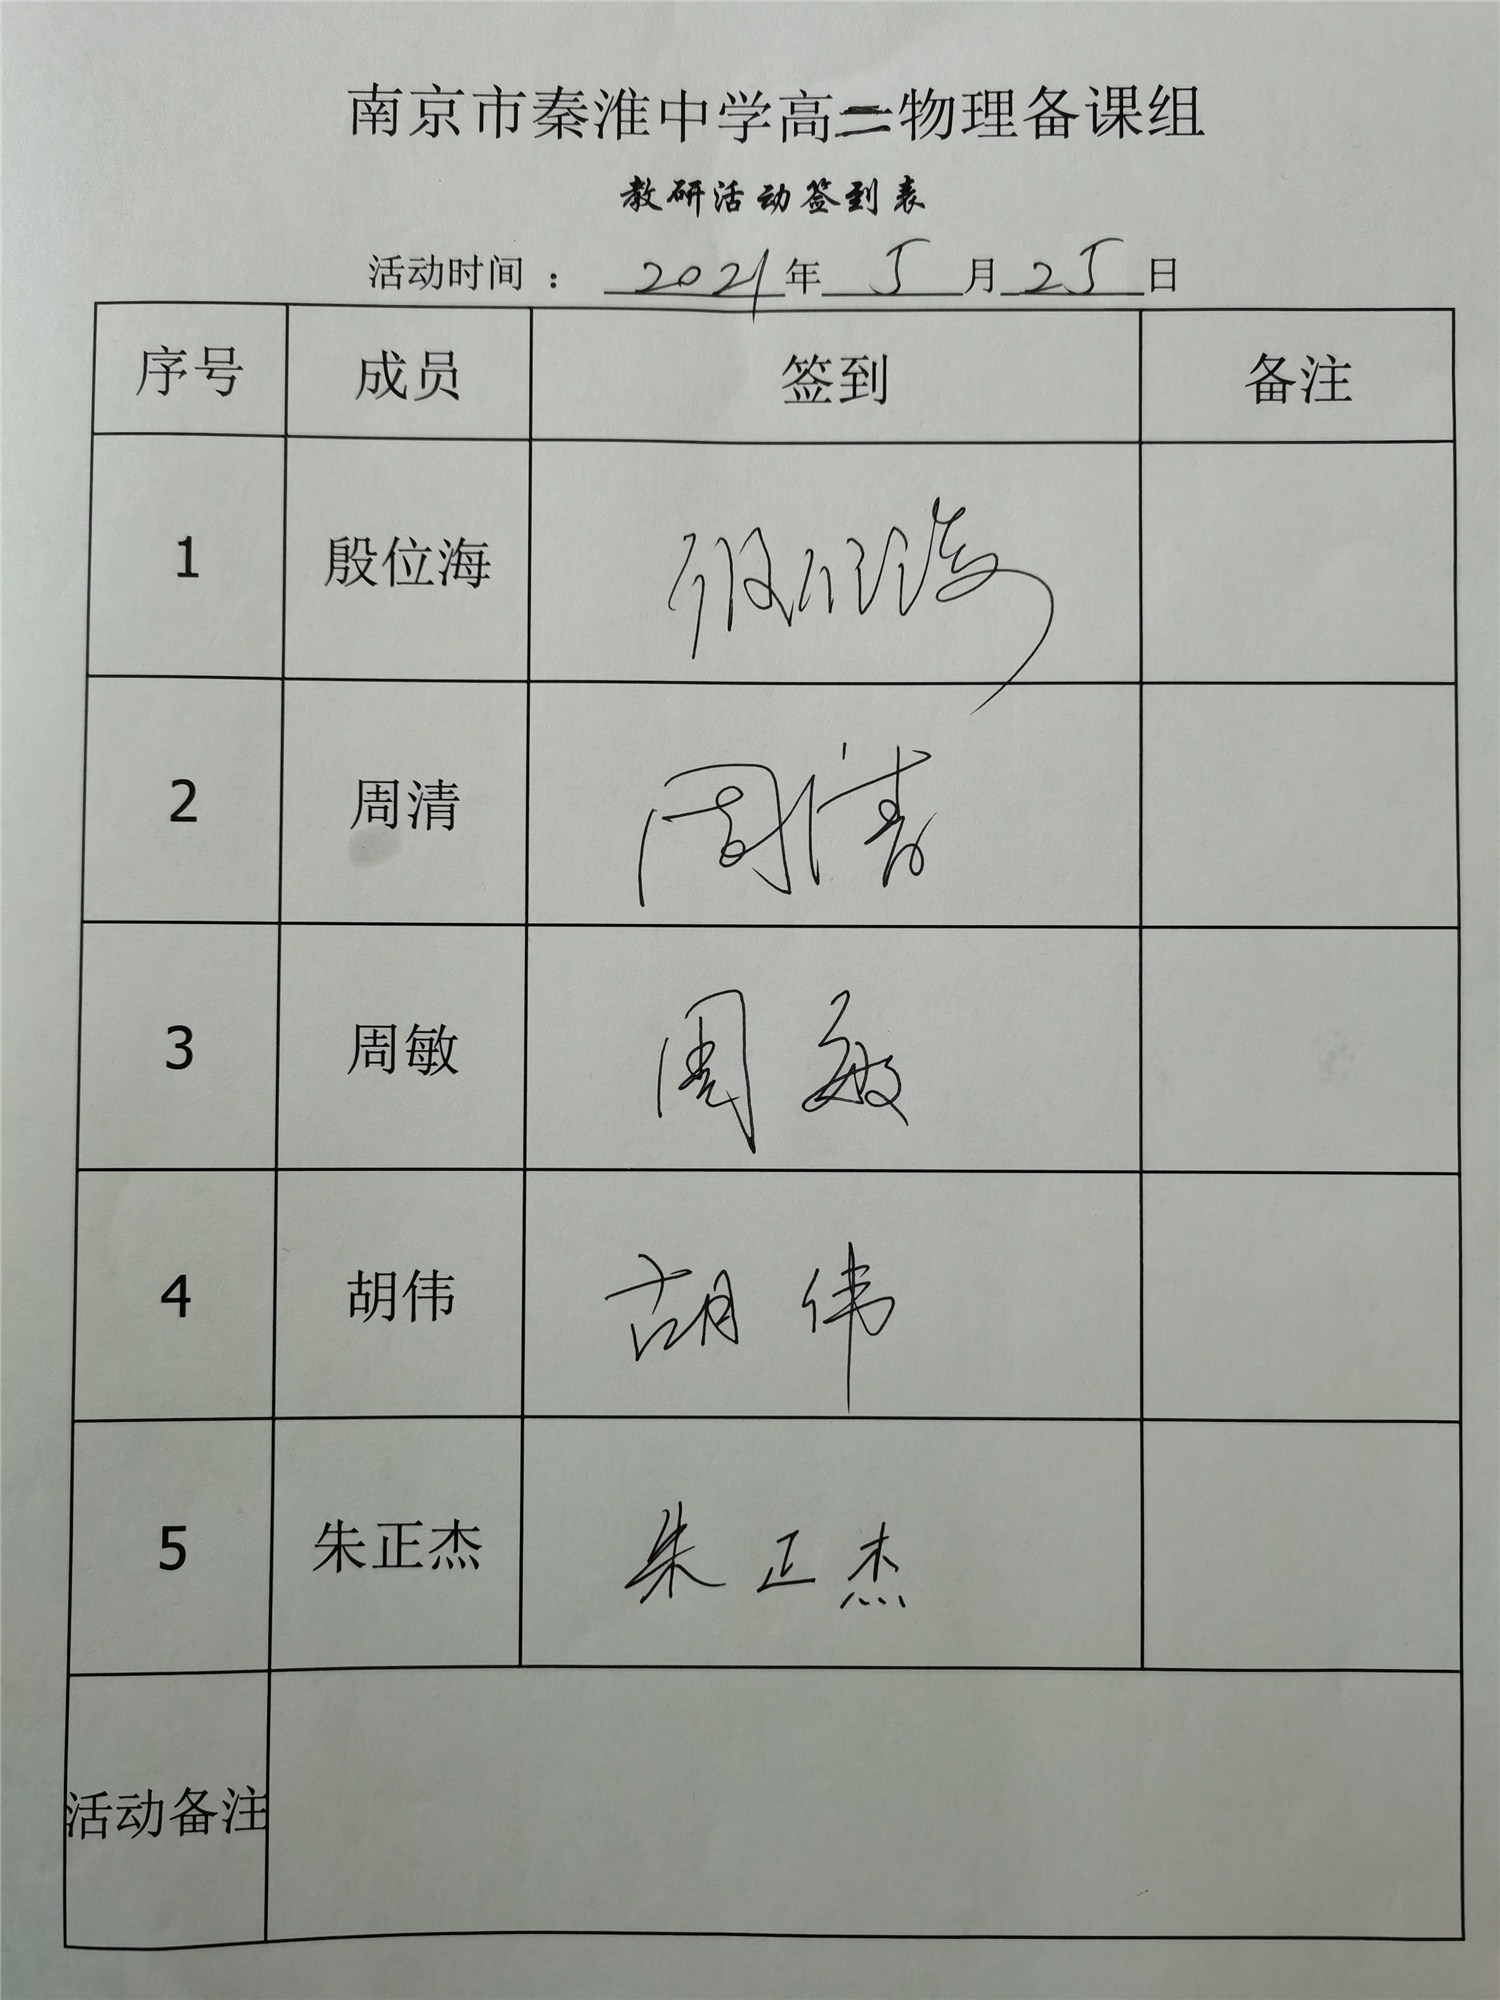 南京市秦淮中学高二物理备课组
教研活动签到表
活动时间 : 2021年 5 月 25 日
序号 成员 签到 备注
1 殷位海 殷位海
2 周清 周清
3 周敏 周敏
4 胡伟 胡伟
5 朱正杰 朱正杰
活动备注